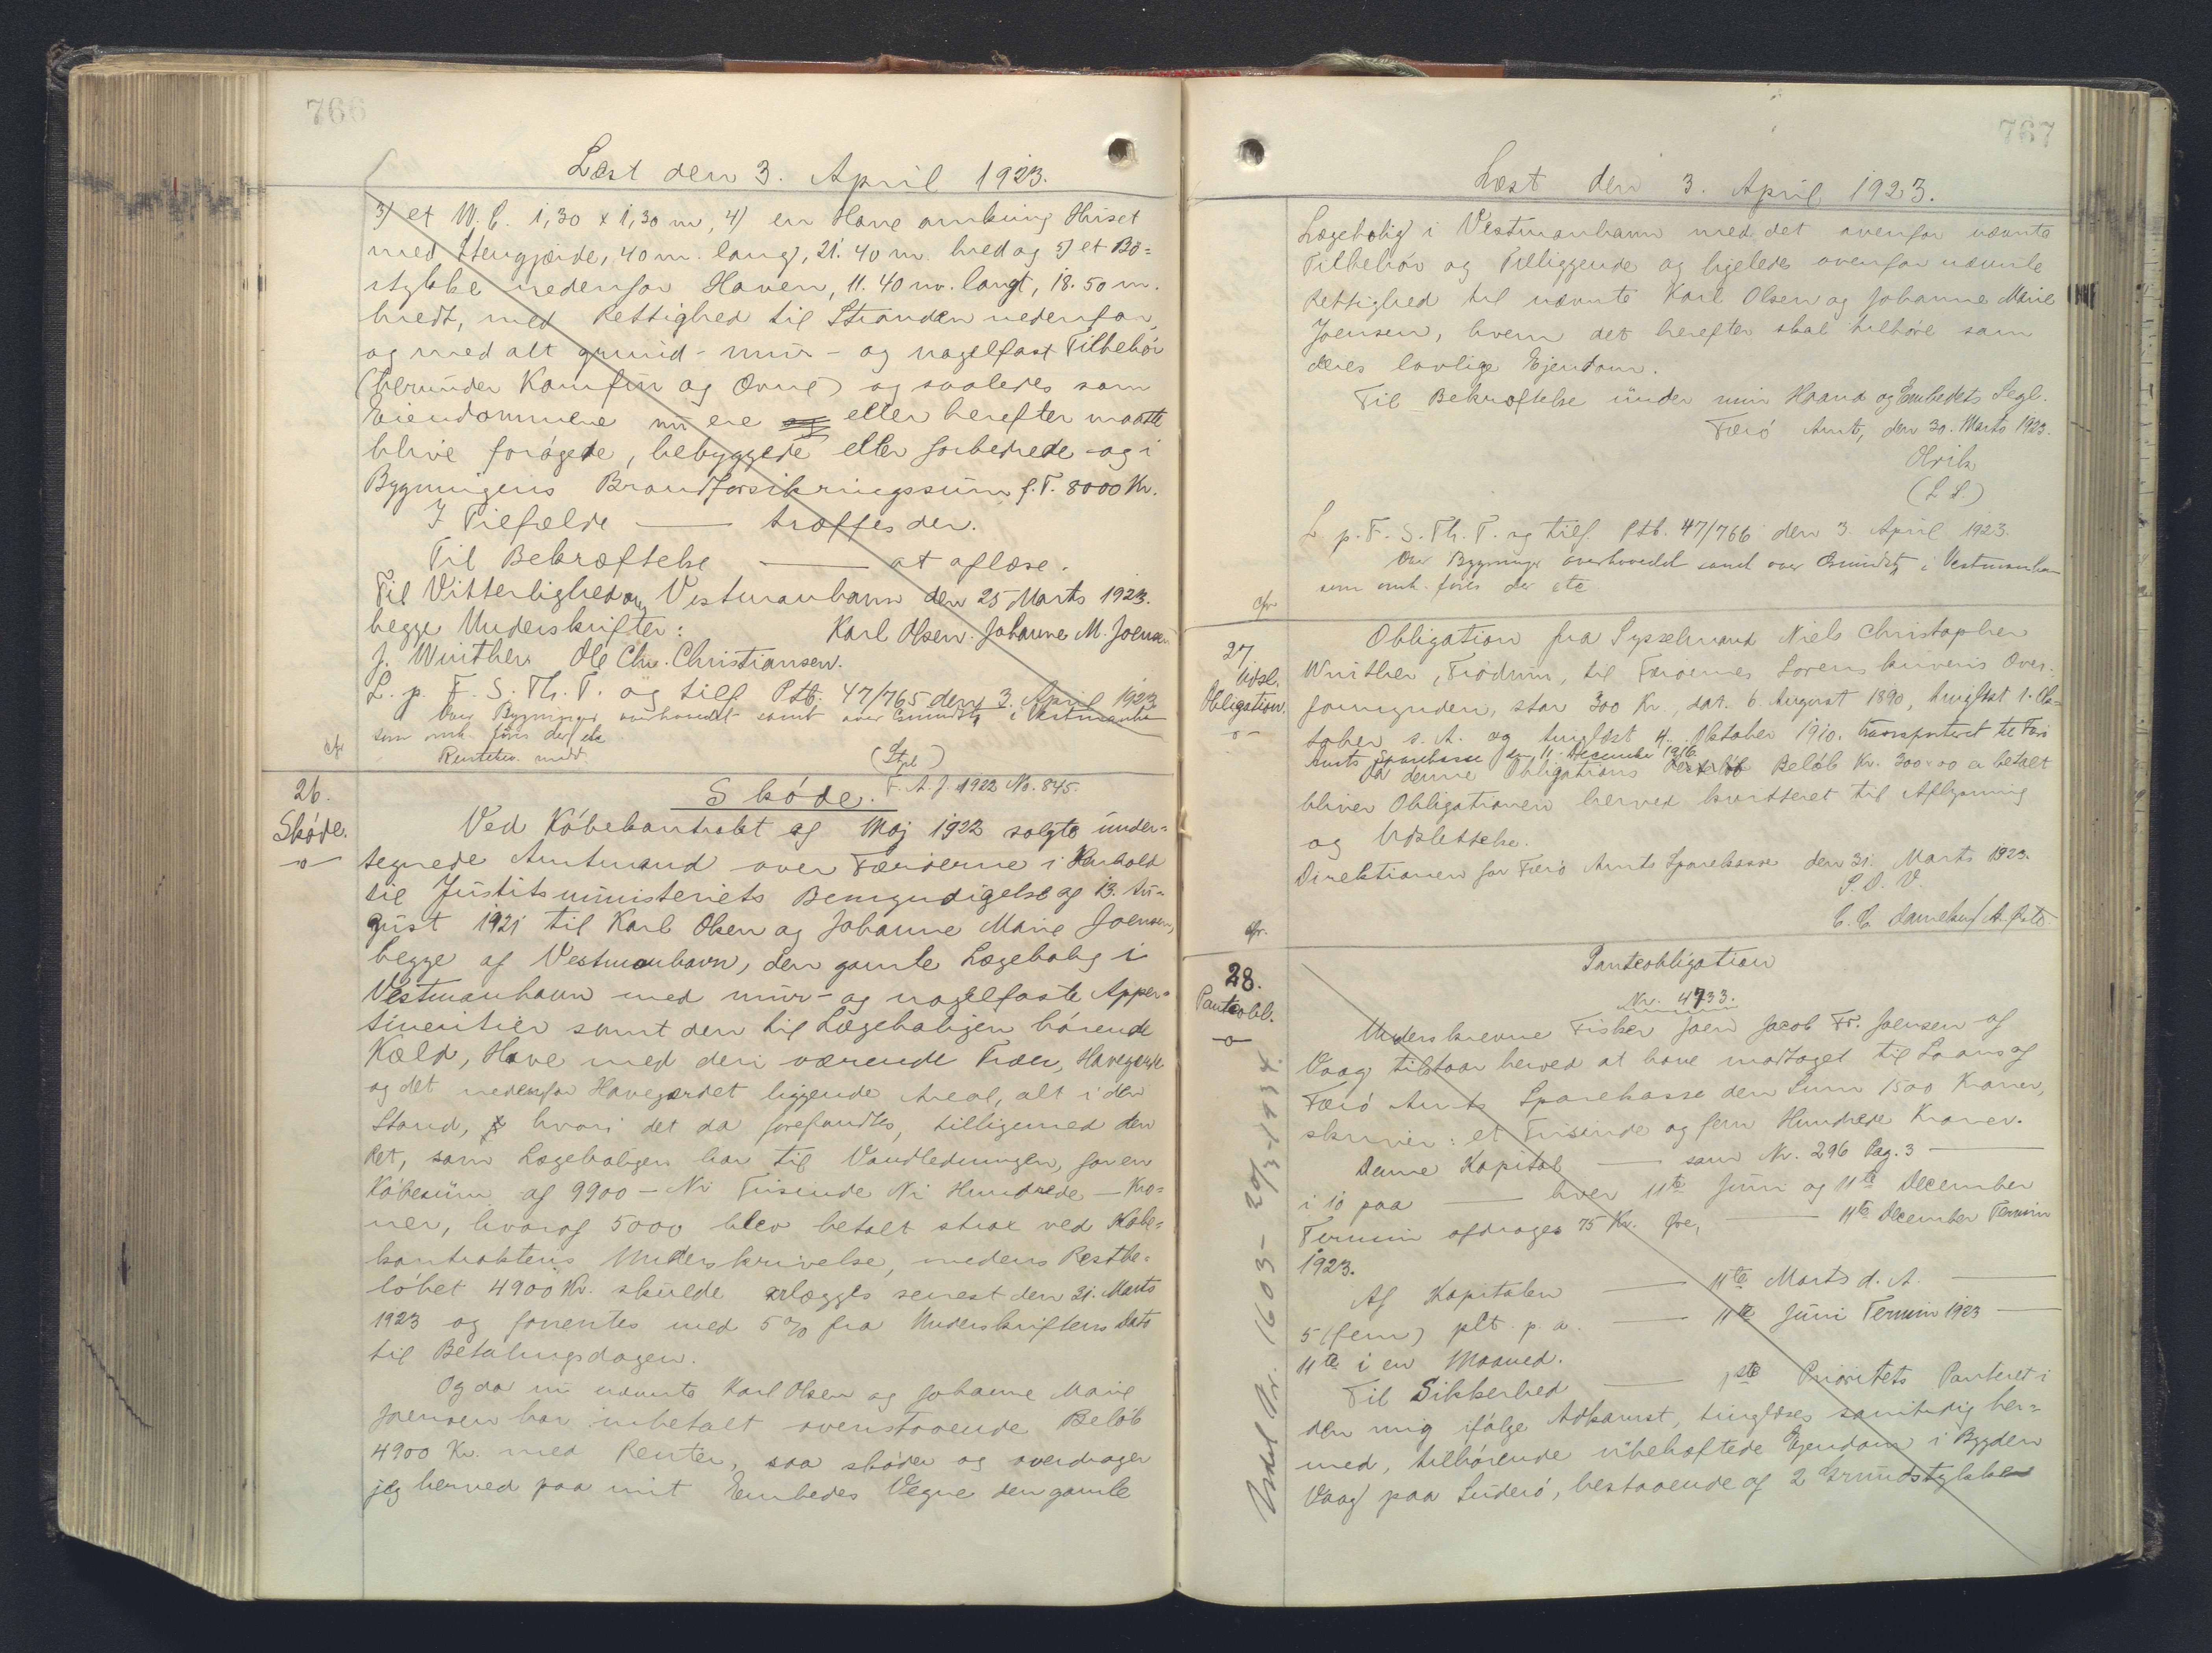 766
Læst den 3. April 1923.
3) et W.C. 1,30 x 1,30 m, 4) en Have omkring Huset
med Stengjærde, 40 m. lang, 21.40 m. bred og 5) et Bø-
stykke nedenfor Haven, 11.40 m. langt, 18.50 m.
bredt, med Rettighed til Stranden nedenfor,
og med alt grund- mur- og nagelfast Tilbehør
(herunder Komfur og Ovne) og saaledes som
Eiendommene nu ere eller herefter maatte
blive forøgede, bebyggede eller forbedrede og i
Bygningens Brandforsikringssum p.T. 8000 Kr.
I Tilfælde — træffes der.
Til Bekræftelse — at aflæse.
Til Vitterlighed om Vestmanhavn den 25 Marts 1923.
begge Underskrifter: Karl Olsen. Johanne M. Joensen
J. Winther. Ole Chr. Christiansen.
L. p. F. S. Th. T. og tilf. Ptb. 47/765 den 3. April 1923
Over Bygninger overhovedet samt over Grundstk i Vestmanha
som omh. føres der etc
cfr
Rentebev. medd.
(Stpl)
26.
Skøde.
-o-
Skøde. F. A. J. 1922 No. 845.
Ved Købekontrakt af Maj 1922 solgte under-
tegnede Amtmand over Færøerne i Henhold
til Justitsministeriets Bemyndigelse af 13. Au-
gust 1921 til Karl Olsen og Johanne Marie Joensen,
begge af Vestmanhavn, den gamle Lægebolig i
Vestmanhavn med mur- og nagelfaste Apper-
tinentier samt den til Lægeboligen hørende
Kæld, Have med deri værende Træer, Havegærde
og det nedenfor Havegærdet liggende Areal, alt i den
Stand, hvori det da forefandtes, tilligemed den
Ret, som Lægeboligen har til Vandledningen, for en
Købesum af 9900 — Ni Tusinde Ni Hundrede — Kro-
ner, hvoraf 5000 blev betalt strax ved Købe-
kontraktens Underskrivelse, medens Restbe-
løbet 4900 Kr. skulde erlægges senest den 31. Marts
1923 og forrentes med 5 % fra Underskriftens Dato
til Betalingsdagen.
Og da nu nævnte Karl Olsen og Johanne Marie
Joensen har indbetalt ovenstaaende Beløb
4900 Kr. med Renter, saa skøder og overdrager
jeg herved paa mit Embedes Vegne den gamle
767
Læst den 3. April 1923.
Lægebolig i Vestmanhavn med det ovenfor nævnte
Tilbehør og Tilliggende og ligeledes ovenfor nævnte
Rettighed til nævnte Karl Olsen og Johanne Marie
Joensen, hvem det herefter skal tilhøre som
deres lovlige Ejendom.
Til Bekræftelse under min Haand og Embedets Segl.
Færø Amt, den 30. Marts 1923.
Olrik
(L S.)
L p. F. S. Th. T. og tilf. Ptb. 47/766 den 3. April 1923.
Over Bygninger overhovedet samt over Grundstk i Vestmanha
som omh. føres der etc
cfr
27
Udsl.
Obligation.
-o-
Obligation fra Sysselmand Niels Christopher
Winther, Trødum, til Færøernes Sorenskriveris Over-
formynderi, stor 300 Kr., dat. 6. August 1890, tinglæst 1. Ok-
tober s. A. og tinglæst 4. Oktober 1910. transporteret til Færø
Amts Sparekasse den 11. December 1916.
Da denne Obligations Beløb Kr. 300.00 er betalt
bliver Obligationen herved kvitteret til Aflysning
og Udslettelse.
Direktionen for Færø Amts Sparekasse den 31. Marts 1923.
P. D. V.
cfr.
28.
Panteobl.
-o-
Panteobligation
Nr. 4733.
Underskrevne Fisker Joen Jacob Fr. Joensen af
Vaag tilstaar herved at have modtaget til Laans af
Færø Amts Sparekasse den Sum 1500 Kroner,
skriver: et Tusinde og fem Hundrede Kroner.
Denne Kapital — som Nr. 296 Pag. 3 —
i 10 paa — hver 11te Juni og 11te December
Termin afdrages 75 Kr. Øre, — 11te December Termin
1923.
Af Kapitalen — 11te Marts d. A. —
5 (fem) pCt. p. a. — 11te Juni Termin 1923 —
11te i en Maaned.
Til Sikkerhed — 1ste Prioritets Panteret i
den mig ifølge Adkomst, tinglæses samtidig her-
med, tilhørende ubehæftede Ejendom i Bygden
Vaag paa Suderø, bestaaende af 2 Grundstykker
Udsl. Nr. 1603 - 29/3-1934.